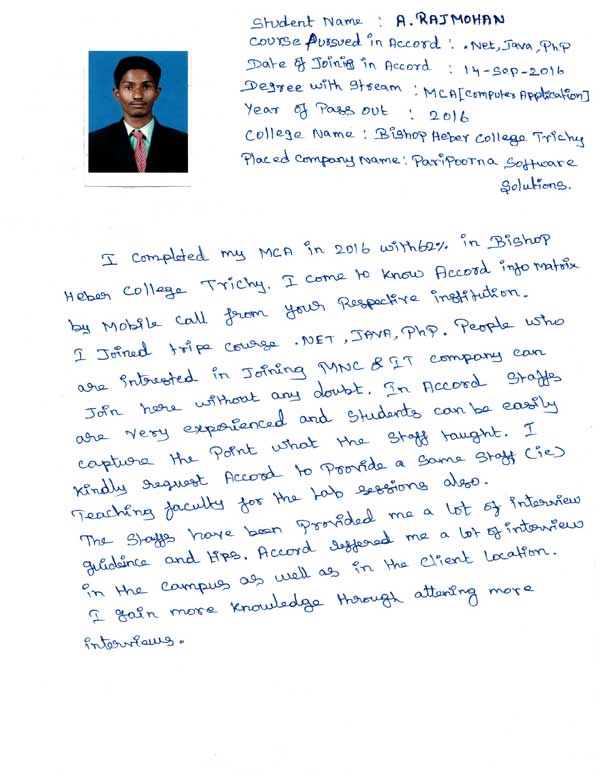 Student Name : A. RAJMOHAN
Course Pursued in Accord : .Net, Java, PhP
Date of Joining in Accord : 14-Sep-2016
Degree with Stream : MCA [Computer Application]
Year of Pass out : 2016
College Name : Bishop Heber College Trichy
Placed Company Name : Paripoorna Software
Solutions.
I completed my MCA in 2016 with 62% in Bishop
Heber College Trichy. I come to know Accord info Matrix
by Mobile call from your Respective institution.
I Joined tripe course .NET, JAVA, PhP. People who
are intrested in Joining MNC & IT company can
Join here without any doubt. In Accord Staffs
are very experienced and Students can be easily
capture the Point what the Staff taught. I
kindly request Accord to Provide a Same Staff (ie)
Teaching faculty for the Lab sessions also.
The Staffs have been Provided me a lot of interview
guidence and tips. Accord reffered me a lot of interview
in the campus as well as in the Client Location.
I gain more knowledge through attening more
interviews.